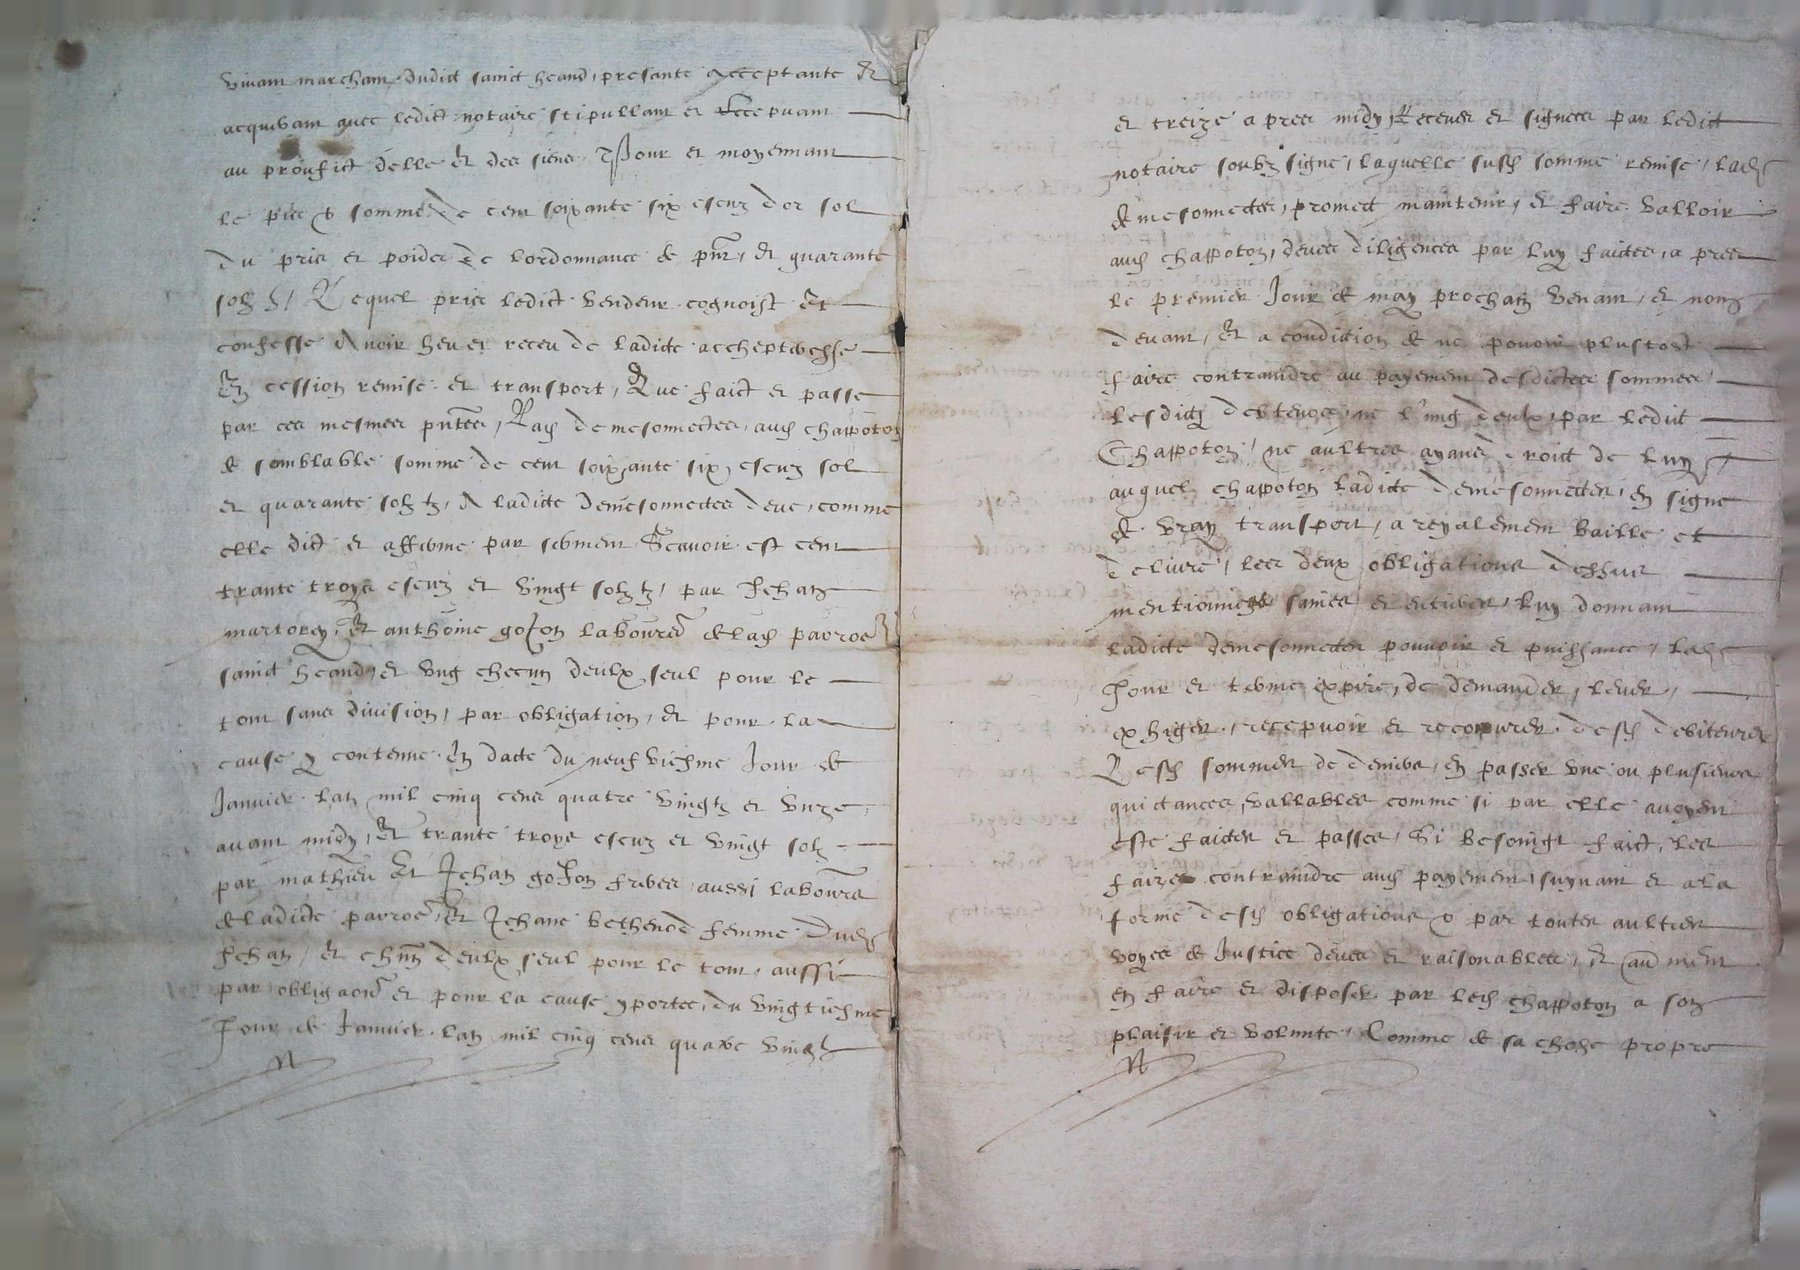 vivant marchant dudict sainct heand, presante acceptante et
acquerant avec ledict notaire stipullant et recepvant
au prouffict d'elle et des siens, Pour et moyennant
le pris et somme de cent soixante six escuz d'or sol
du pris et poidz de l'ordonnance de pnt, et quarante
solz tz, Lequel pris ledict vendeur cognoist et
confesse Avoir heu et receu de ladicte achepteresse
En cession remise et transport, Que faict et passe
par ces mesmes pntes, Lad demesonnectes, aud chappoton
de semblable somme de cent soixante six escuz sol
et quarante solz tz, A ladicte demesonnectes deue, comme
elle dict et afferme par serment Scavoir est cent
trante troys escuz et vingt solz tz, par Jehan
martorey, Et anthoine goJon laboured de lad parroe
sainct heand, et ung checun deulx seul pour le
tout sans division, par obligation, et pour la
cause y contenue En dacte du neufviesme Jour de
Janvier lan mil cinq cens quatre vingtz et unze,
avant midy, Et trante troys escuz et vingt solz
par mathieu Et Jehan goJon freres, aussi laboures
de ladicte parroe, Et Jehane bethenod femme dud
Jehan, et chun deulx seul pour le tout, aussi
par obligaon et pour la cause y portee, du vingtiesme
Jour de Janvier lan mil cinq cens quatre vingtz
et treize apres midy, Receues et signees par ledict
notaire soubz signe, laquelle susd somme remise, lad
demesonnectes, promect maintenir, et faire valloir
aud chappoton, deues diligences par luy faictes, apres
le premier Jour de may prochain venant, et nom
devant, et a condition de ne pouvoir plustost
faire contraindre au payement desdictes sommes
lesdictz debteurs, ne l'ung deulx, par ledict
Chappoton, ne aultres ayans droict de luy
auquel chappoton ladicte demesonnectes, en signe
de vray transport, a reyalement baille et
delivre, les deux obligations dessus
mentionnees, saines et entieres, luy donnant
ladicte demesonnectes pouvoir et puissance, led
Jour et terme expire, de demander, lever,
exhiger, recepvoir et recouvrer desd debiteurs
Lesd sommes de deniers, en passer une ou plusieurs
quictances vallables comme si par elle avoyent
este faictes et passes, Si besoingt faict, les
faires contraindre aud payement, suyvant et a la
forme desd obligations & par toutes aultres
voyes de Justice deues et raisonables, Et aultrement
en faire et disposer par led chappoton a son
plaisir et volunte, Comme de sa chose propre